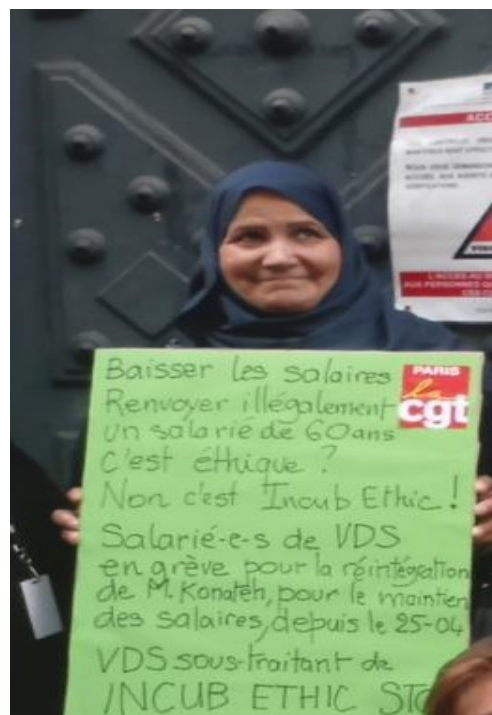 Baisser les salaires
Renvoyer illégalement
un salarié de 60 ans
C'est éthique ?
Non c'est Incub Ethic !
Salarié-e-s de VDS
en grève pour la réintégration
de M. Konateh, pour le maintien
des salaires, depuis le 25-04
VDS sous-traitant de
INCUB ETHIC
PARIS
la
cgt
L'ACCES AU
AUX PERSONNES